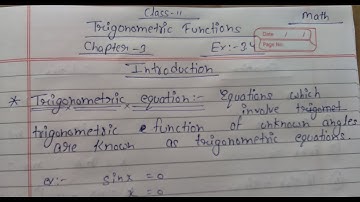 Class-11
Math
Trigonometric Functions
Date / /
Page No.
Chapter-3 Ex:-3.4
Introduction
* Trigonometric equation:- Equations which
involve trigomet
trigonometric function of unknown angles
are known as trigonometric equations.
ex:- sinx = 0
x = 0